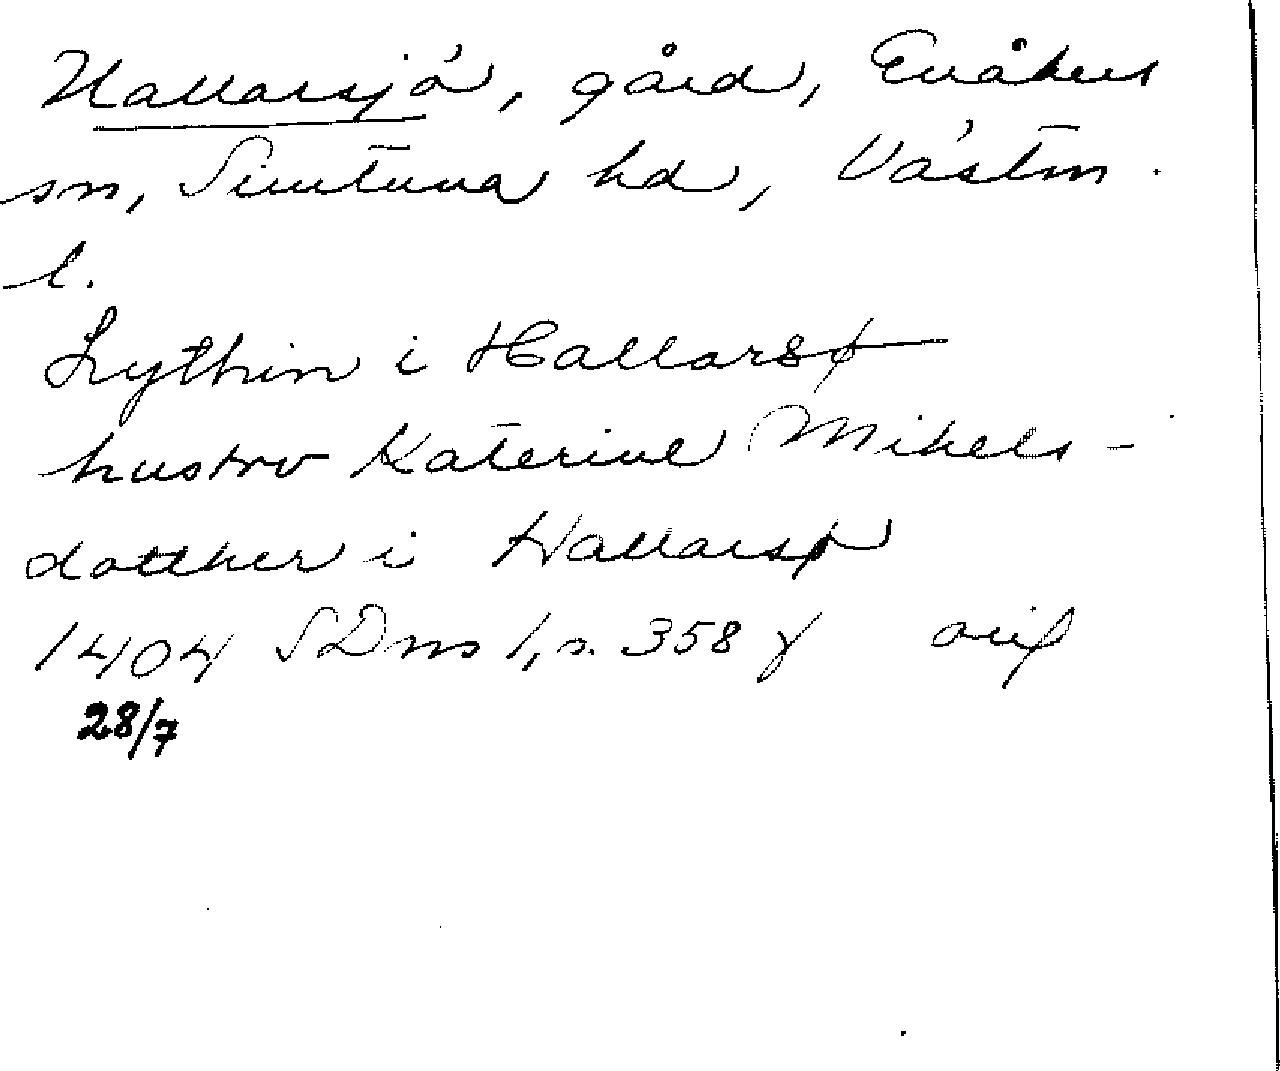 Hallarsjö, gård, Enåkers
sn, Simtuna hd, Västm.
l.
Lythin i Hallarsø
hustrv Katerine Mikels-
dotther i Hallarsø
1404 SDns 1, s. 358 f or
28/7